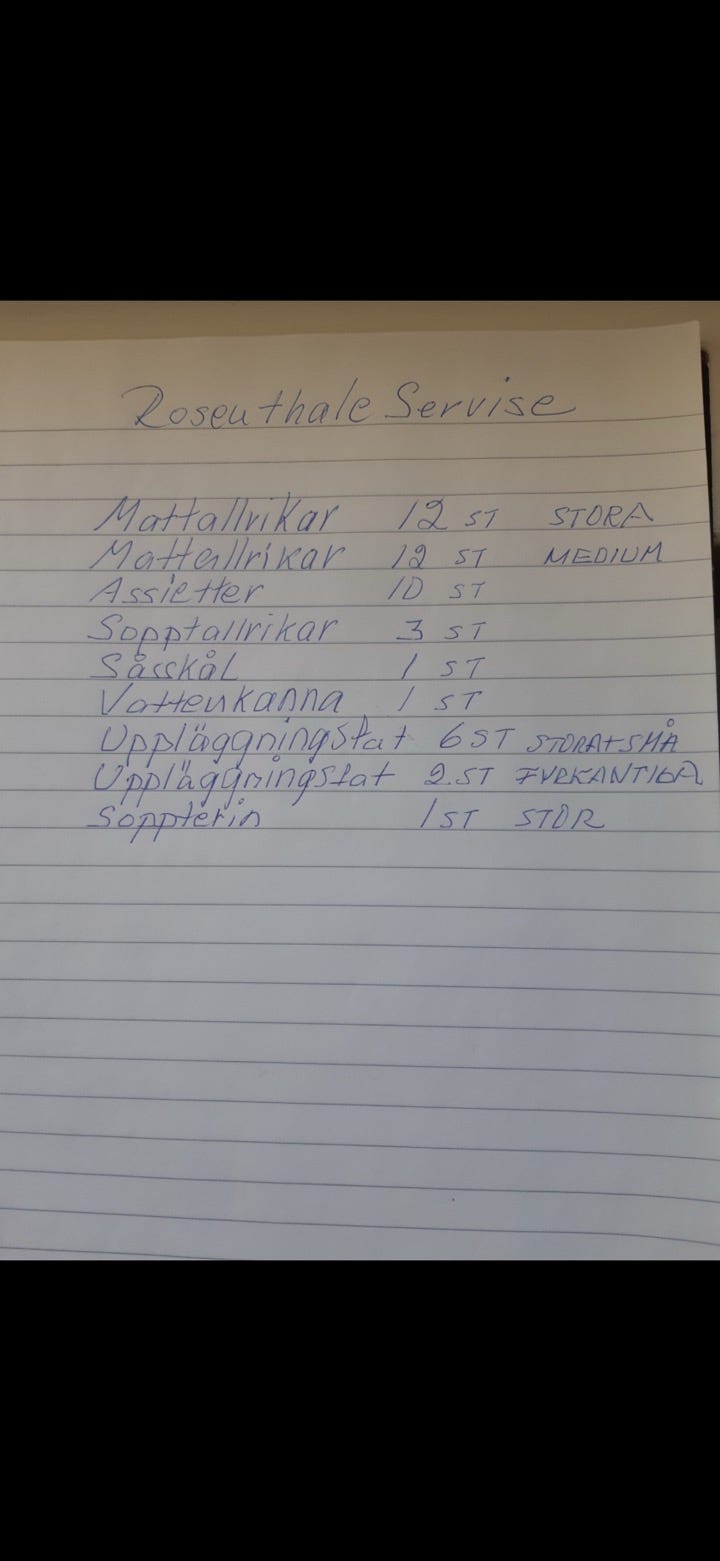 Rosenthale Servise
Mattallrikar 12 ST STORA
Mattallrikar 12 ST MEDIUM
Assietter 10 ST
Sopptallrikar 3 ST
Såsskål 1 ST
Vattenkanna 1 ST
Uppläggningsfat 6 ST STORA+SMÅ
Uppläggningsfat 2 ST FYRKANTIGA
Soppterin 1 ST STOR